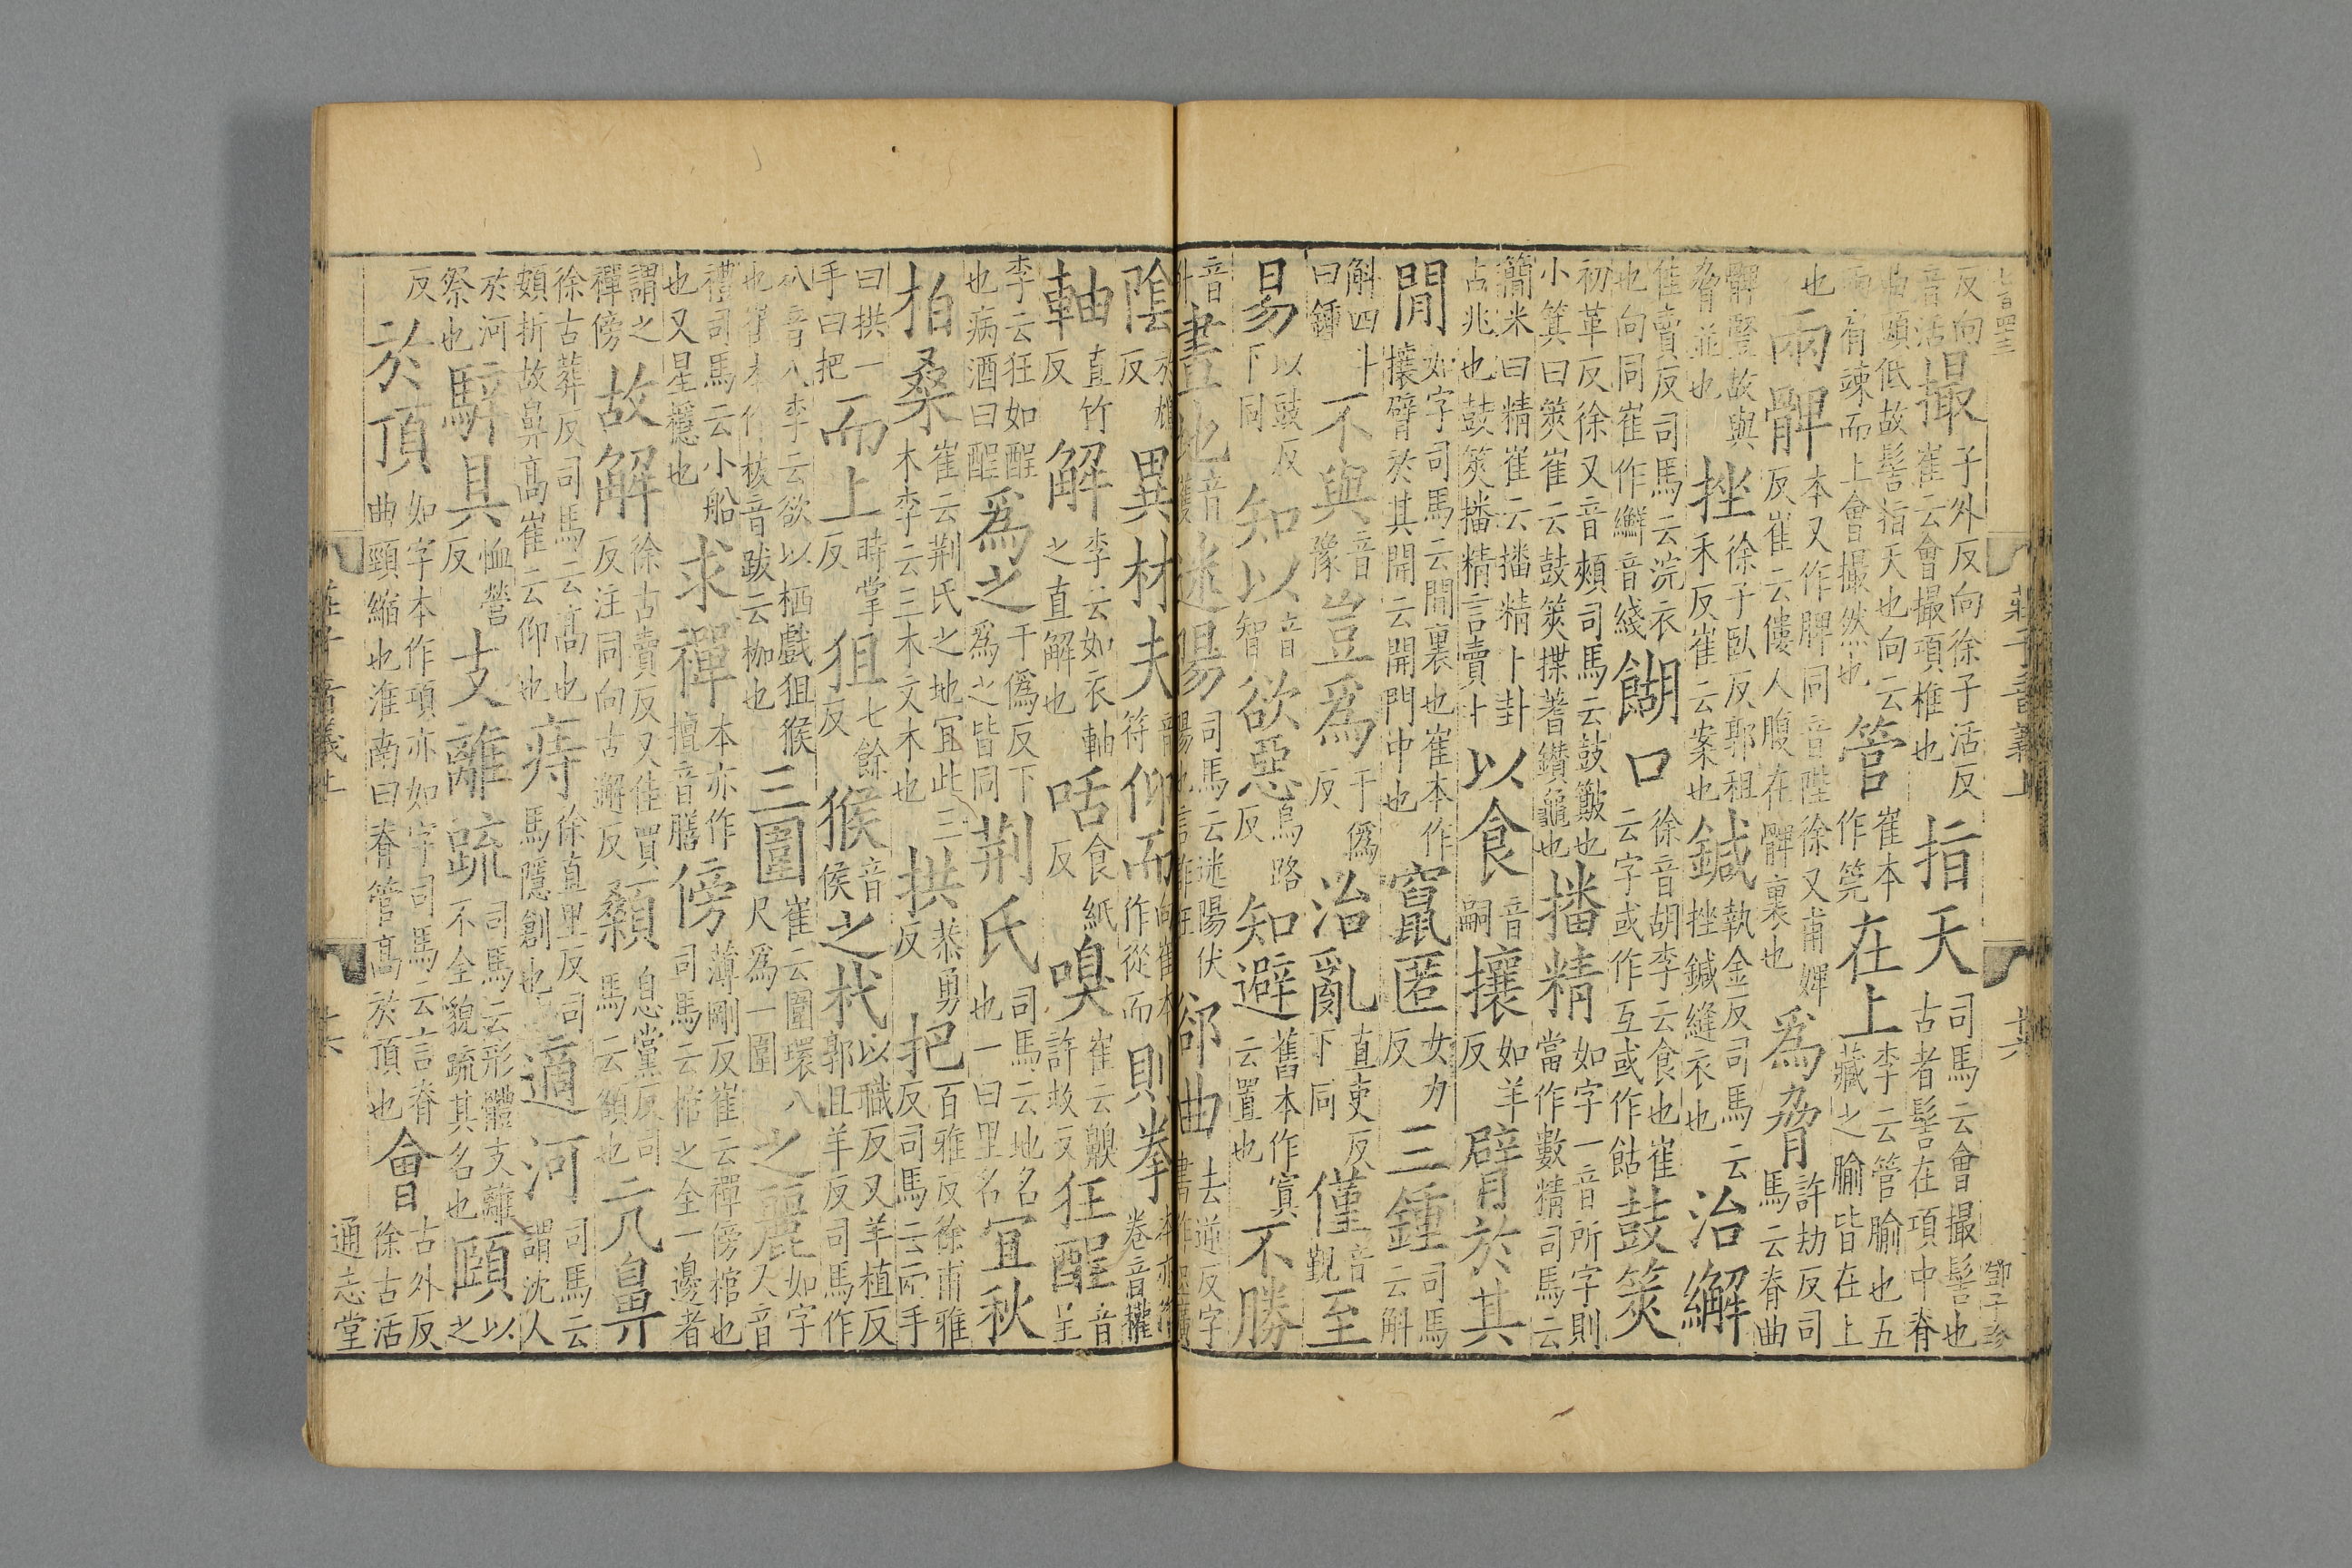 七百四三 莊子音義上 廿六 鄧子珍
反向音活撮子外反向徐子活反崔云會撮項椎也指天司馬云會撮髻也古者髻在項中脊
曲頭低故髻指天也向云兩肩竦而上會撮然也管崔本作筦在上李云管腧也五藏之腧皆在上
也兩髀本又作脾同音陛徐又甫婢反崔云僂人腹在髀裏也爲脅許劫反司馬云脊曲
髀豎故與脅並也挫徐子臥反郭租禾反崔云案也鍼執金反司馬云挫鍼縫衣也治繲
佳賣反司馬云浣衣也向同崔作繲音綫餬口徐音胡李云食也崔云字或作互或作飴鼓筴
初革反徐又音頰司馬云鼓簸也小箕曰筴崔云鼓筴揲蓍鑽龜也播精如字一音所字則當作數精司馬云
簡米曰精崔云播精卜卦占兆也鼓筴播精言賣卜以食音嗣攘如羊反臂於其
閒如字司馬云閒裏也崔本作攘臂於其開云開門中也竄匿女力反三鍾司馬云斛
斛四斗曰鍾不與音豫豈爲于僞反治亂直吏反下同僅至音覲
易以豉反下同知以音智欲惡烏路反知避舊本作寘云置也不勝
音升晝地音獲迷陽司馬云迷陽伏陽也言詐狂郤曲去逆反字書作
陰反異材夫音符仰而向崔本作從而則拳本亦作卷音權
軸直竹反解李云如衣軸之直解也咶食紙反嗅崔云齅許救反狂酲音呈
李云狂如酲也病酒曰酲爲之于僞反下爲之皆同荆氏司馬云地名也一曰里名宜秋
柏桑崔云荆氏之地宜此三木李云三木文木也拱恭勇反把百雅反徐甫雅反司馬云兩手
曰拱一手曰把而上時掌反狙七餘反猴音侯之杙以職反又羊植反郭且羊反司馬作
朳音八李云欲以栖戲狙猴也崔本作柭音跋云枷也三圍崔云圍環八尺爲一圍之麗如字又音
禮司馬云小船也又屋穩也求禪本亦作擅音膳傍薄剛反崔云禪傍棺也司馬云棺之全一邊者
謂之禪傍故解徐古賣反又佳買反注同向古邂反顙息黨反司馬云額也亢鼻
徐古葬反司馬云高也頞折故鼻高崔云仰也痔徐直里反司馬隱創也適河司馬云謂沈人
於河祭也騂具恤營反支離疏司馬云形體支離不全貌疏其名也頤以之
反於頂如字本作項亦如字司馬云言脊曲頸縮也淮南曰脊管高於頂也會古外反徐古活
莊子音義上 廿六 通志堂